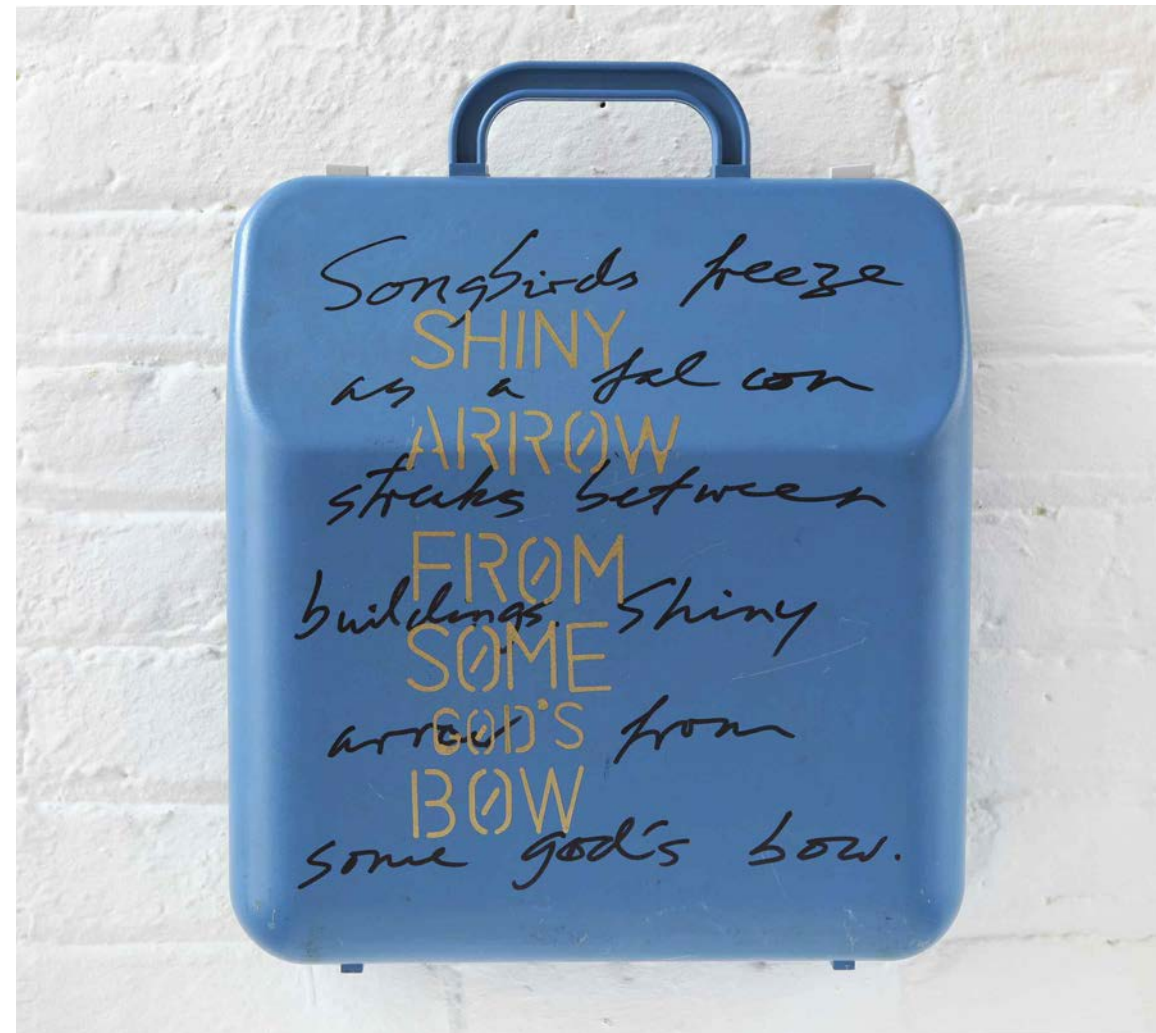 Songbirds freeze
SHINY
as a falcon
ARROW
streaks between
FROM
buildings. Shiny
SOME
arrow from
GOD'S
BOW
some god's bow.